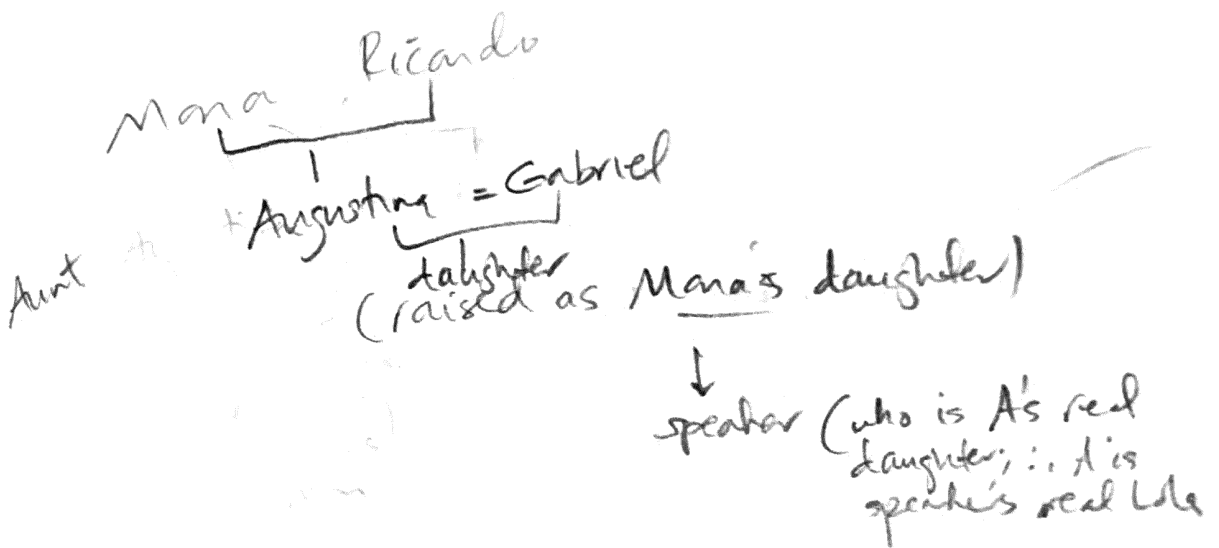 Ricardo
Mona
Augustina = Gabriel
daughter
Aunt
(raised as Mona's daughter)
↓
speaker (who is A's real
daughter; ∴ A is
speaker's real Lola